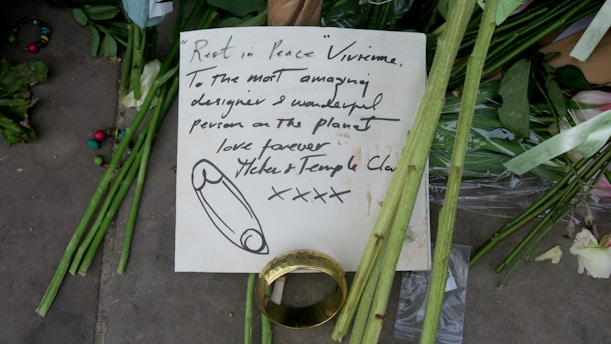 "Rest in Peace" Vivienne,
To the most amazing
designer & wonderful
person on the planet
love forever
& Temple
xxxx